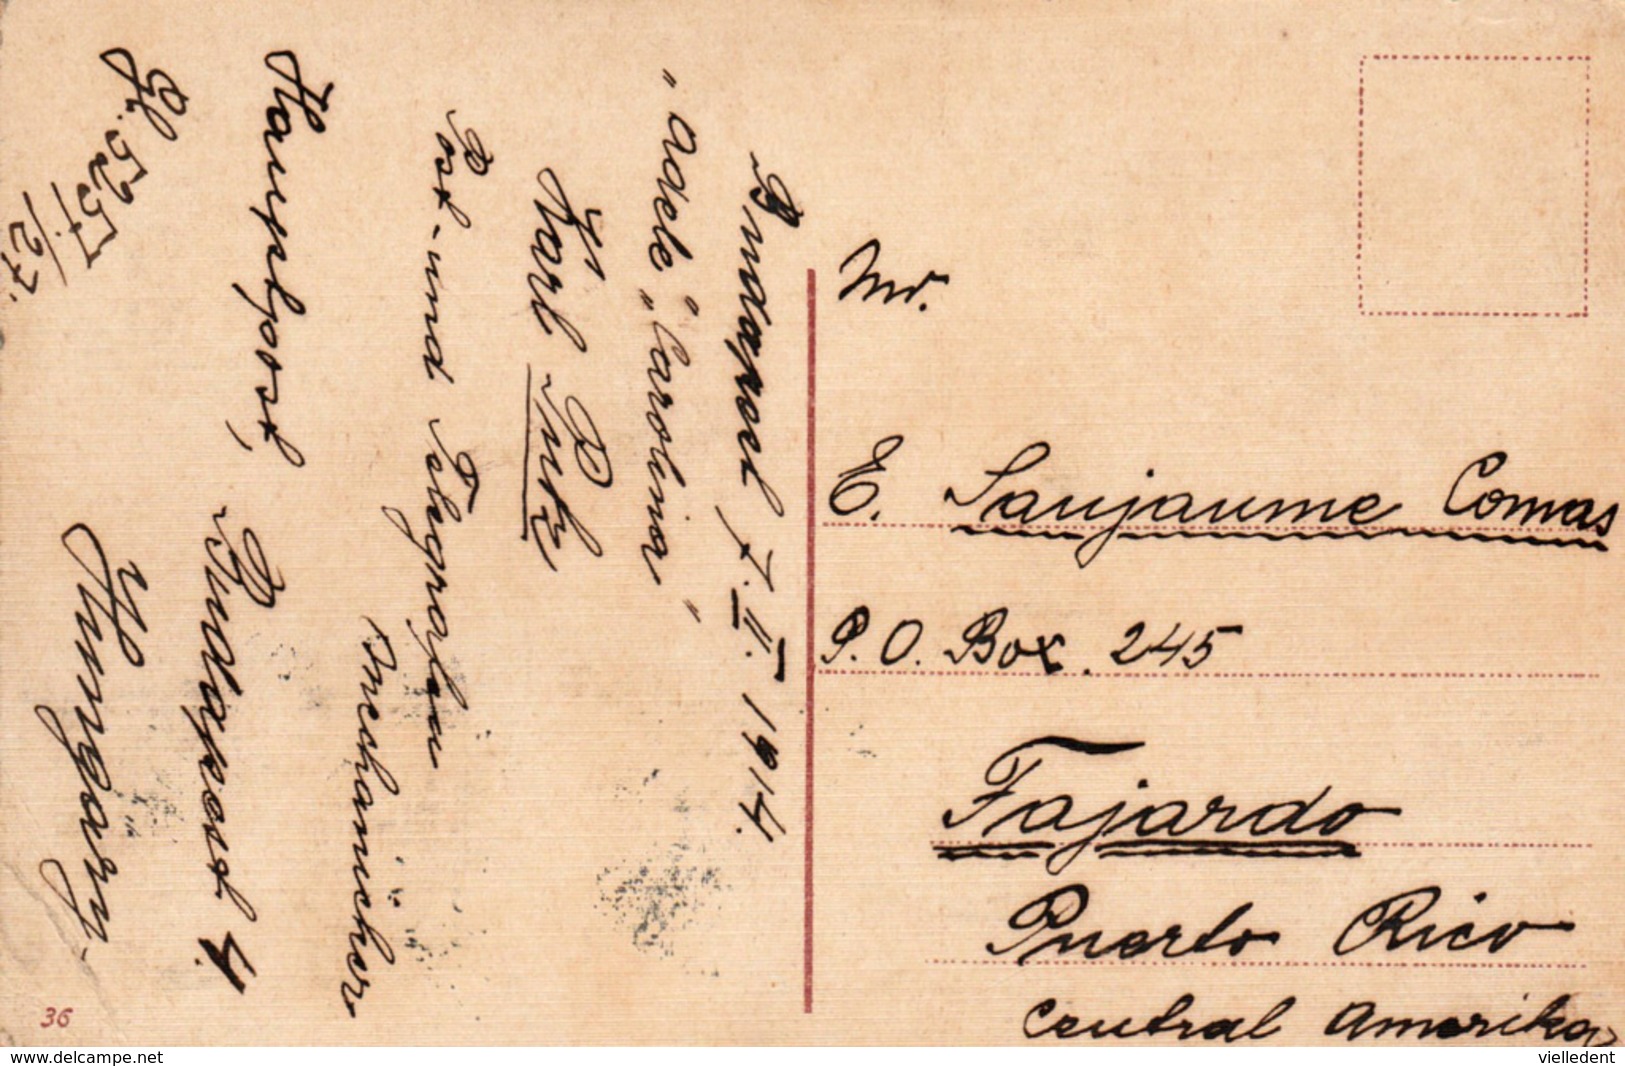 Budapest 7. II. 1914.
„Adele" „Carolina"
Karl Putz
Post- und Telegrafen
mechaniker
Hauptpost,
Budapest 4.
Hungary.
5257/27.
Mr.
E. Saujaume Comas
P. O. Box. 245
Fajardo
Puerto Rico
Central Amerika
36
www.delcampe.net
vielledent